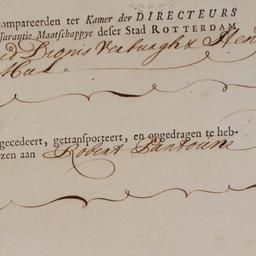 ompareerden ter Kamer der DIRECTEURS
surantie Maatschappye deser Stad ROTTERDAM
Dionis Verburgh & Hen
gecedeert, getransporteert, en opgedragen te heb-
zen aan Robert Santouns